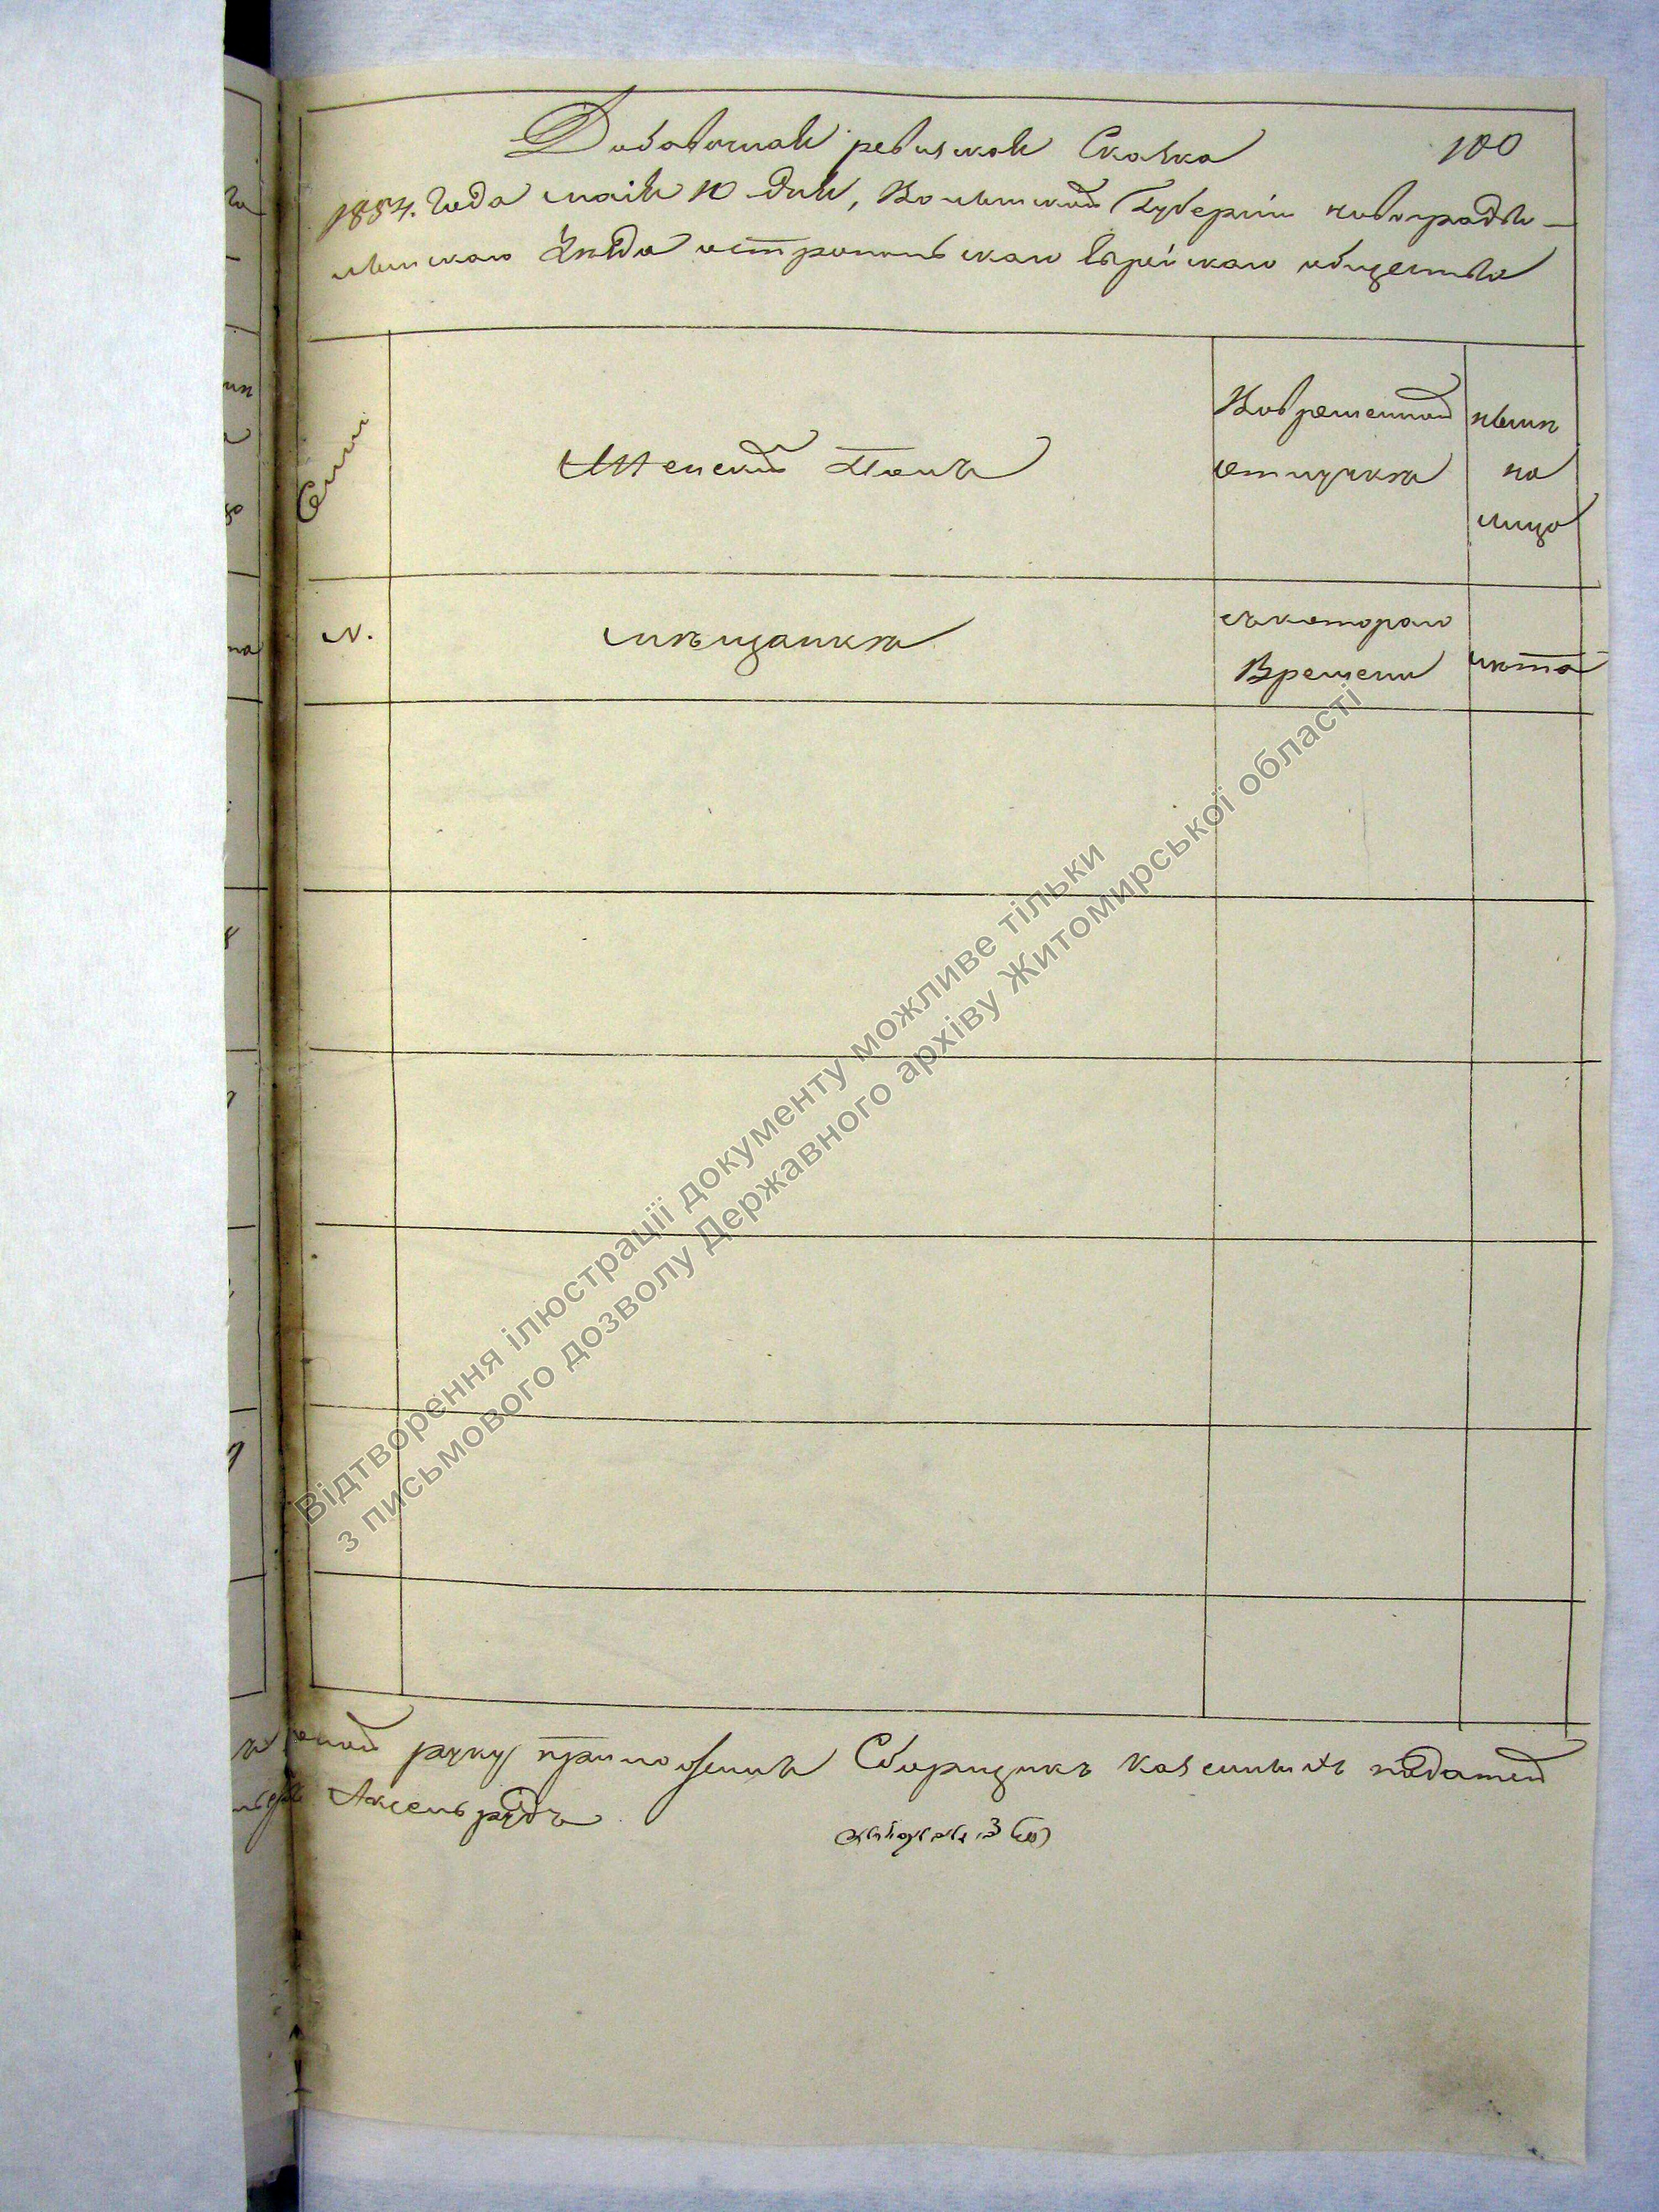 Добавочная ревизская Сказка
100
1854. Года маія 10 дня, Волынской Губерніи новоградъво-
лынскаго уѣзда остропольскаго Еврейскаго общества
Семьи
Женскій Полъ
Вовременной
отлучкѣ
нынѣ
на
лицо
N.
мѣщанкѣ
съкотораго
Времени
лѣта
руку приложилъ Сборщикъ казенныхъ податей
Аксельрудъ
Відтворення ілюстрації документу можливе тільки
з письмового дозволу Державного архіву Житомирської області